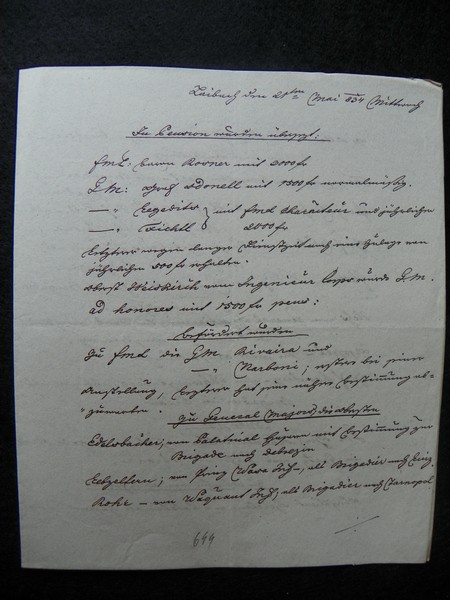 Laibach den 21ten Mai 834 Mittwoch
In Pension wurden übersezt:
FML: Baron Rovner mit 4000 fr
G.M: Graf Odonell mit 1500 fr normalmäßig.
—„ Csegedits } mit FML Charakter und jährlichen
—„ Fichtl 2000 fr
letzterer wegen langer Dienstzeit noch eine Zulage von
jährlichen 500 fr erhalten.
Oberst Weiskirch vom Ingenieur Corps wurde G.M.
ad honores mit 1500 fr pens:
befördert wurden
Zu FML die G.M. Rivaira und
—„ Marboni; ersterer bei seiner
Anstellung, letzterer hat seine nähere Bestimmung ab-
zuwarten.
Zu General Majors die Obersten
Edelsbacher; von Palatinal Husaren mit Bestimmung zur
Brigade nach Debrezin
Retzelfern; von Prinz Wasa Inf., als Brigadier nach
Rohr — von Wacquant Inf; als Brigadier nach Tarnopol
644